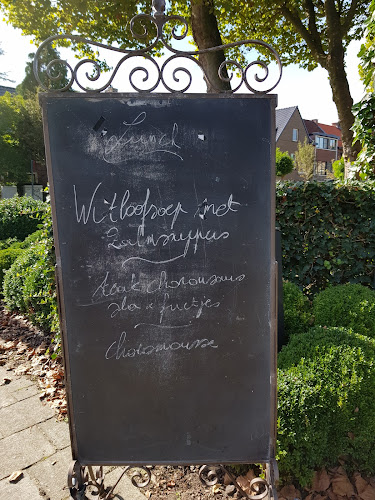 Lunch
Witloofsoep met
Zalmsnippers
Steak choronsaus
sla & frietjes
Chocomousse